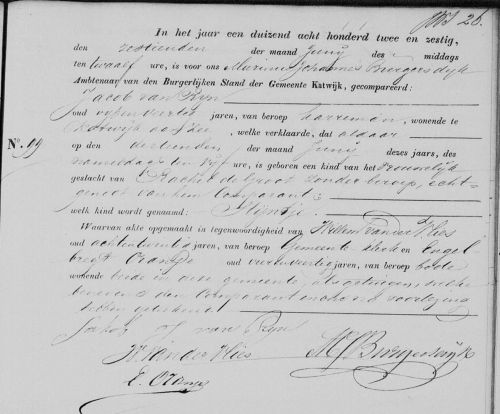 28.
In het jaar een duizend acht honderd twee en zestig,
den zestienden der maand Junij des middags
ten twaalf ure, is voor ons Marinus Johannes Burgersdijk
Ambtenaar van den Burgerlijken Stand der Gemeente Katwijk, gecompareerd:
Jacob van Rijn
oud vijfenveertig jaren, van beroep, wonende te
Katwijk aan Zee, welke verklaarde, dat aldaar
N°. 99 op den dertienden der maand Junij dezes jaars, des
namiddags ten vijf ure, is geboren een kind van het Vrouwelijk
geslacht van Rachel de Groot zonder beroep, echt-
genoot van hem Comparant:
welk kind wordt genaamd: Pijntje
Waarvan akte opgemaakt in tegenwoordigheid van Willem van der Vlies
oud achtentwintig jaren, van beroep Gemeente klerk en Engel
bregt Oranje oud vierenveertig jaren, van beroep bode
wonende beide in deze gemeente, als getuigen, welke
benevens den Comparant na voorlezing
hebben geteekend
Jacob van Rijn
W. van der Vlies MJBurgersdijk
E. Oranje